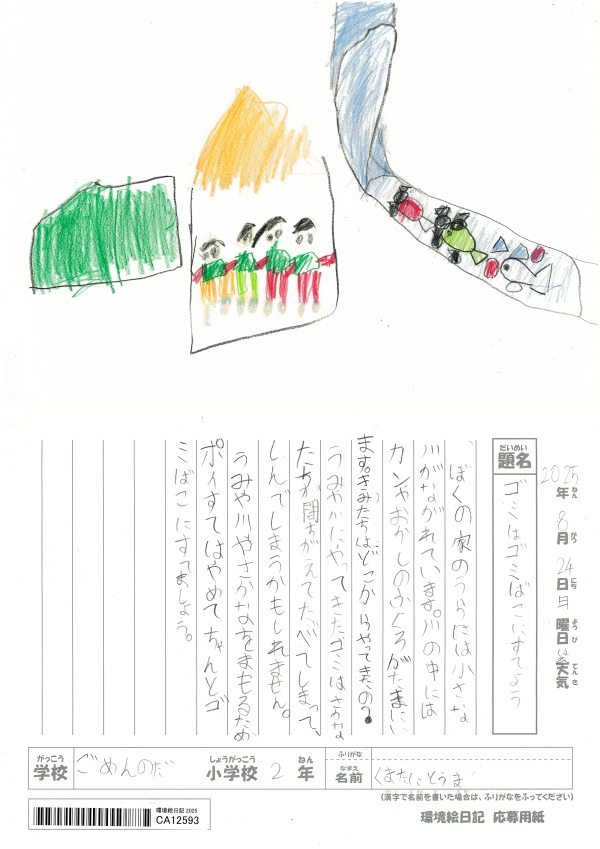 2025年ねん 8月がつ 24日にち 日曜日ようび 天気てんき
だいめい
題名 ゴミはゴミばこにすてよう
ぼくの家のうらには小さな
川がながれています。川の中には
カンやおかしのふくろがたまにい
ます。きみたちはどこからやってきたの?
うみやかにやってきたゴミはさかな
たちが間ちがえてたべてしまって、
しんでしまうかもしれません。
うみや川やさかなをまもるため
ポイすてはやめてちゃんとゴ
ミばこにすてましょう。
がっこう しょうがっこう ねん ふりがな
学校 ごめんのだ 小学校 2 年
なまえ
名前 くまたにとうま
(漢字で名前を書いた場合は、ふりがなをふってください)
環境絵日記 応募用紙
環境絵日記 2025
CA12593